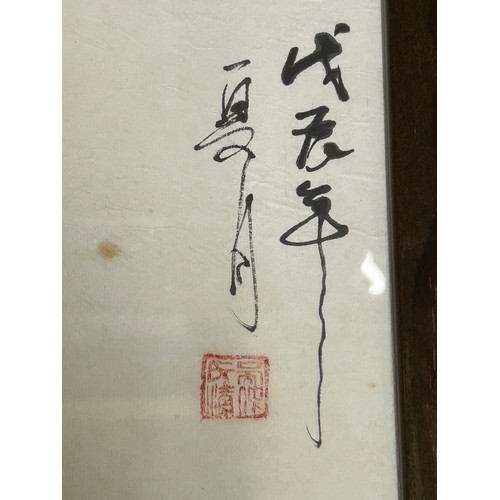 戊辰年
夏月